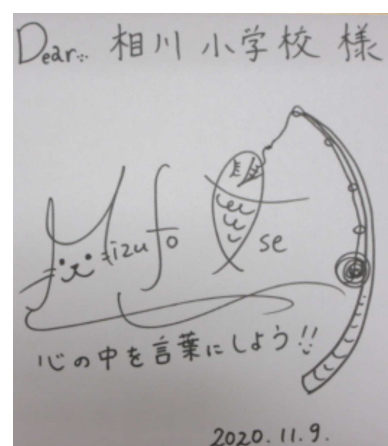 Dear... 相川 小学校 様
Mizu fo se
心の中を言葉にしよう!!
2020.11.9.